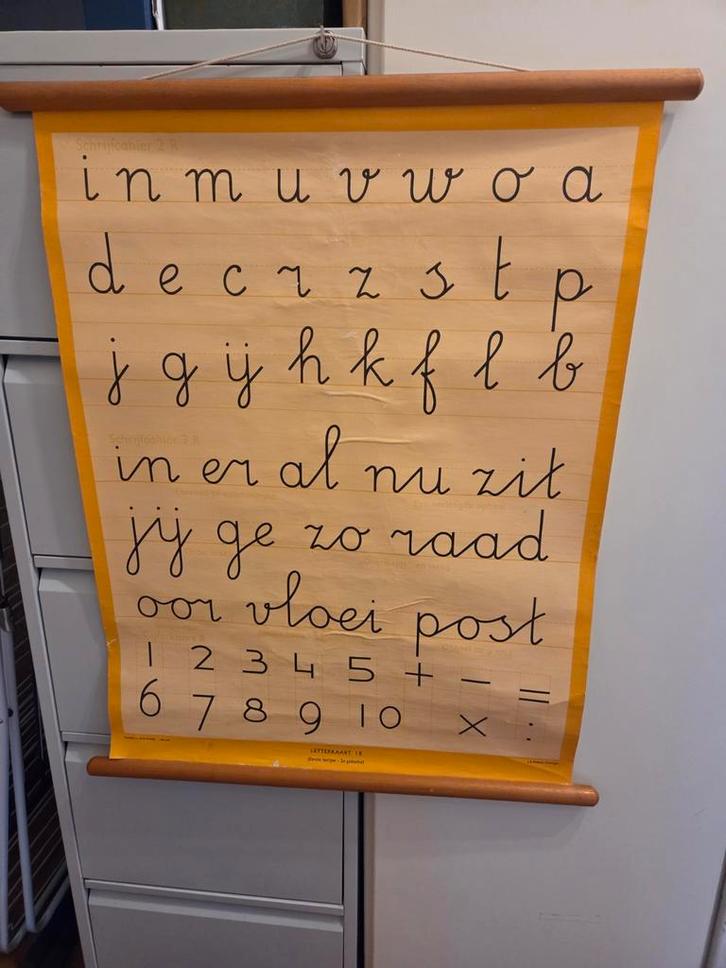 Schrijfcahier 2 R
i n m u v w o a
d e c r z s t p
j g ij h k f l b
Schrijfcahier 3 R
in er al nu zit
jij ge zo raad
oor vloei post
1 2 3 4 5 + − =
6 7 8 9 10 × :
LETTERKAART 1 R